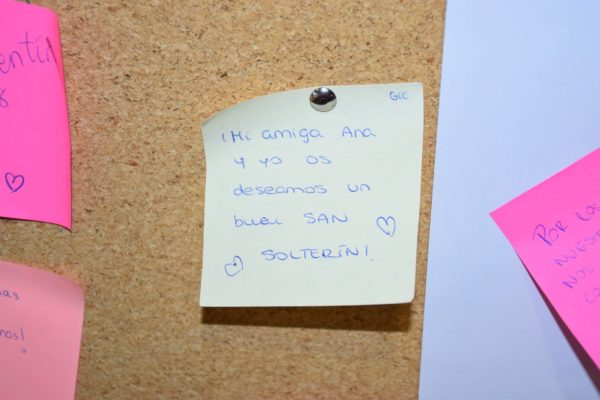 entín
GIC
¡Mi amiga Ana
y yo os
deseamos un
buen SAN
SOLTERÍN!
mos!
POR LOS
NUEST
NOS